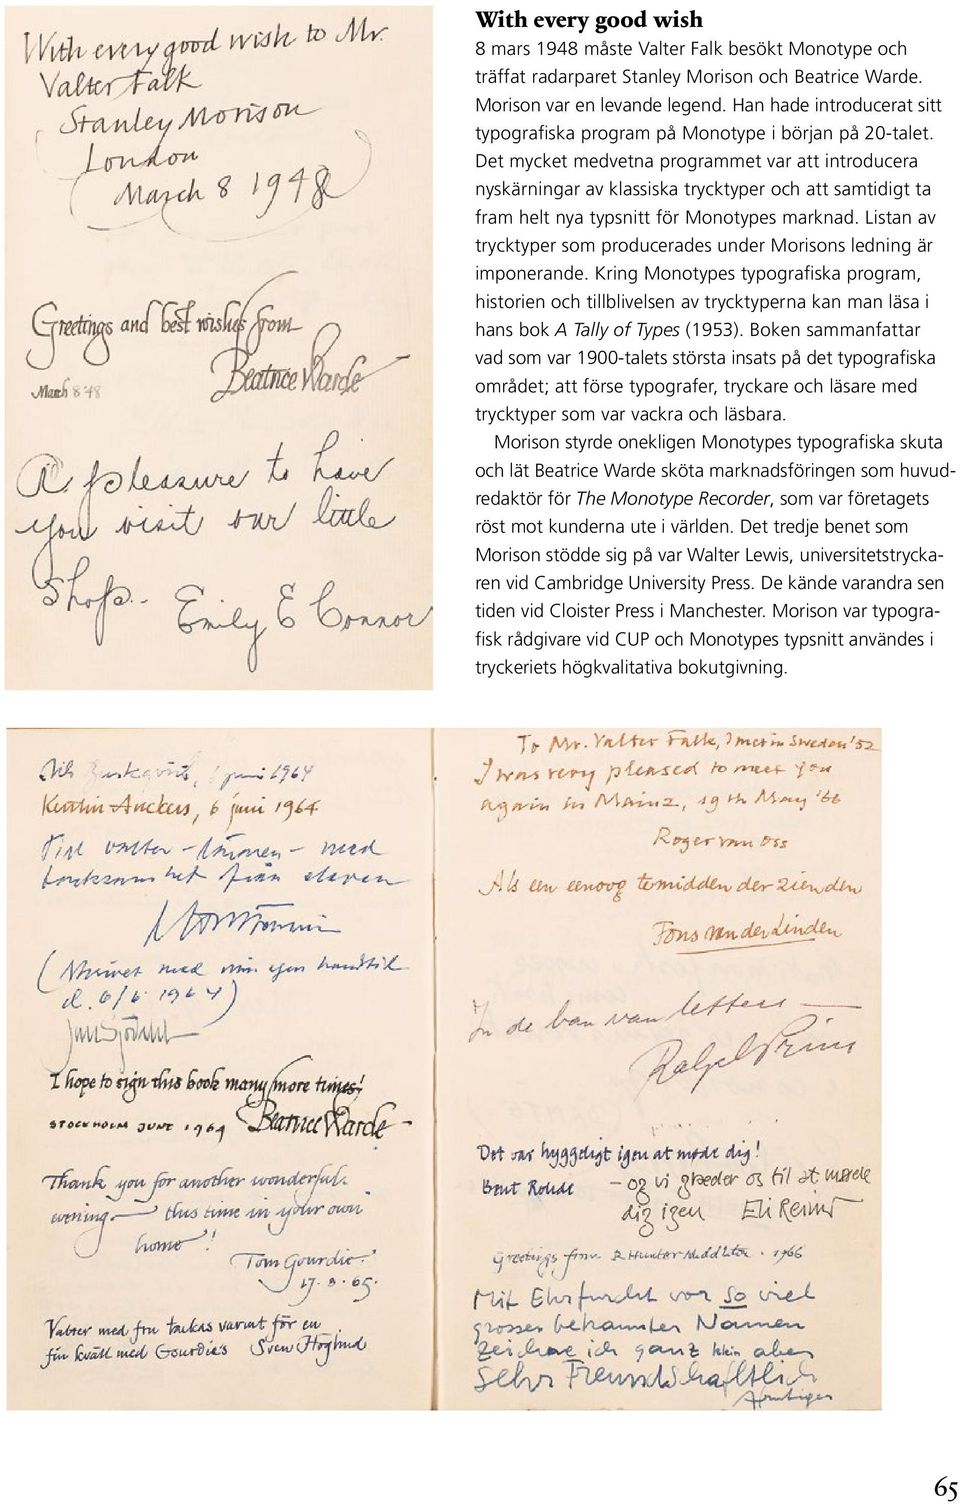 With every good wish to Mr.
Valter Falk
Stanley Morison
London
March 8 1948
Greetings and best wishes from
Beatrice Warde
March 8 '48
A pleasure to have
you visit our little
shop.
Emily E Connor
With every good wish
8 mars 1948 måste Valter Falk besökt Monotype och
träffat radarparet Stanley Morison och Beatrice Warde.
Morison var en levande legend. Han hade introducerat sitt
typografiska program på Monotype i början på 20-talet.
Det mycket medvetna programmet var att introducera
nyskärningar av klassiska trycktyper och att samtidigt ta
fram helt nya typsnitt för Monotypes marknad. Listan av
trycktyper som producerades under Morisons ledning är
imponerande. Kring Monotypes typografiska program,
historien och tillblivelsen av trycktyperna kan man läsa i
hans bok A Tally of Types (1953). Boken sammanfattar
vad som var 1900-talets största insats på det typografiska
området; att förse typografer, tryckare och läsare med
trycktyper som var vackra och läsbara.
Morison styrde onekligen Monotypes typografiska skuta
och lät Beatrice Warde sköta marknadsföringen som huvud-
redaktör för The Monotype Recorder, som var företagets
röst mot kunderna ute i världen. Det tredje benet som
Morison stödde sig på var Walter Lewis, universitetstrycka-
ren vid Cambridge University Press. De kände varandra sen
tiden vid Cloister Press i Manchester. Morison var typogra-
fisk rådgivare vid CUP och Monotypes typsnitt användes i
tryckeriets högkvalitativa bokutgivning.
juni 1964
Kerstin Anckers, 6 juni 1964
Till Valter – – med
tacksamhet från eleven
(Skrivet med min egen handstil
d. 6/6 1964)
I hope to sign this book many more times!
STOCKHOLM JUNE 1964 Beatrice Warde
Thank you for another wonderful
evening – this time in your own
home!
Tom Gourdie
17.8.65.
Valter med fru tackas varmt för en
fin kväll med Gourdie's Sven Höglund
To Mr. Valter Falk, I met in Sweden '52
I was very pleased to meet you
again in Mainz, 19th May '66
Roger van Oss
Als een eenoog temidden der zienden
Fons van der Linden
In de ban van letters
Ralph Prins
Det var hyggeligt igen at møde dig!
Bent Rohde – og vi glæder os til at møde
dig igen Eli Reimer
Greetings from R Hunter Middleton . 1966
Mit Ehrfurcht vor so viel
grosser bekannter Namen
zeichne ich ganz klein aber
sehr Freundschaftlich
65